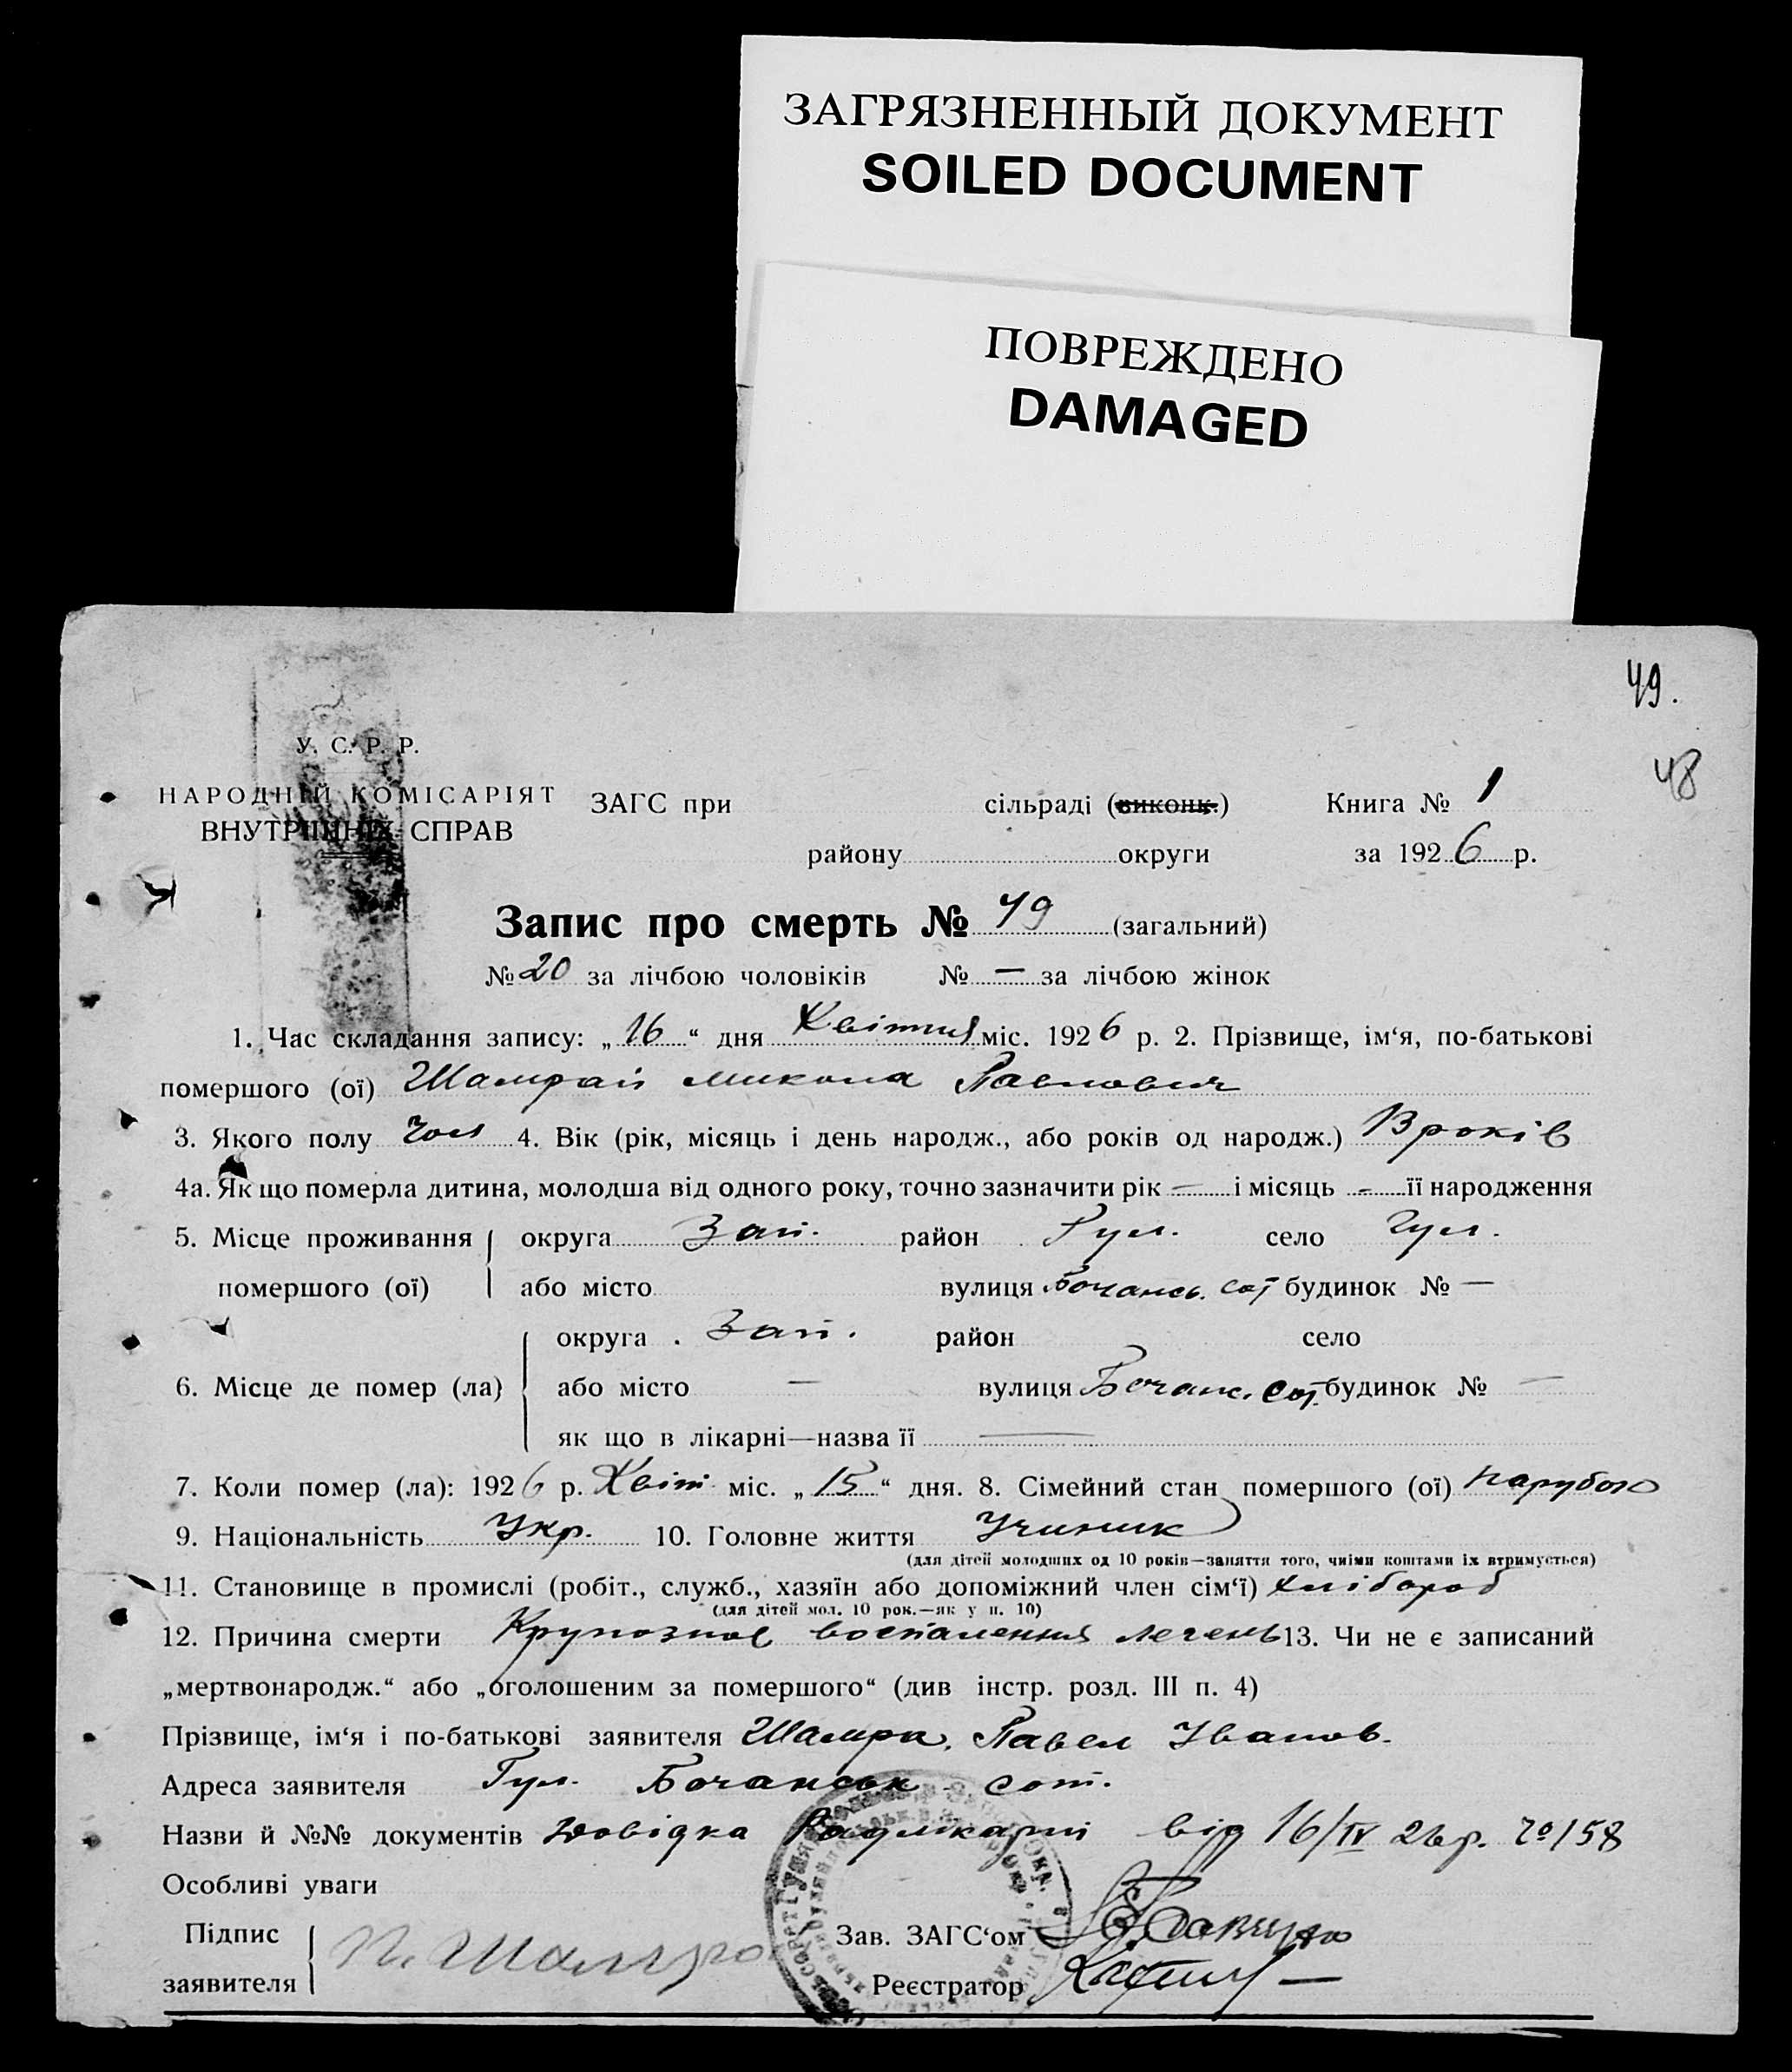 ЗАГРЯЗНЕННЫЙ ДОКУМЕНТ
SOILED DOCUMENT
ПОВРЕЖДЕНО
DAMAGED
49.
48
У. С. Р. Р.
НАРОДНІЙ КОМІСАРІЯТ
ВНУТРІШНІХ СПРАВ
ЗАГС при сільраді (виконк.) Книга № 1
району округи за 1926 р.
Запис про смерть № 49 (загальний)
№ 20 за лічбою чоловіків № — за лічбою жінок
1. Час складання запису: „16“ дня Квітня міс. 1926 р. 2. Прізвище, ім‘я, по-батькові
помершого (ої) Шамрай Микола Павлович
3. Якого полу чол 4. Вік (рік, місяць і день народж., або років од народж.) 13 років
4а. Як що померла дитина, молодша від одного року, точно зазначити рік — і місяць - її народження
5. Місце проживання помершого (ої) округа Зап. район Гул. село Гул.
або місто вулиця Бочансь. сот будинок № —
6. Місце де помер (ла) округа Зап. район село
або місто — вулиця Бочанс. сот. будинок № —
як що в лікарні—назва її —
7. Коли помер (ла): 1926 р. Квіт. міс. „15“ дня. 8. Сімейний стан помершого (ої) парубок
9. Національність Укр. 10. Головне життя Учиник
(для дітей молодших од 10 років—заняття того, чиїми коштами їх втримується)
11. Становище в промислі (робіт., служб., хазяїн або допоміжний член сім‘ї) хлібороб
(для дітей мол. 10 рок.—як у п. 10)
12. Причина смерти Крупозное воспаления легень 13. Чи не є записаний
„мертвонародж.“ або „оголошеним за помершого“ (див інстр. розд. III п. 4)
Прізвище, ім‘я і по-батькові заявителя Шамра. Павел Иванов.
Адреса заявителя Гул. Бочанськ сот.
Назви й №№ документів Довідка Радлікарні від 16/IV 26 р. № 158
Особливі уваги
Підпис заявителя П. Шамра
Зав. ЗАГС‘ом
Реєстратор